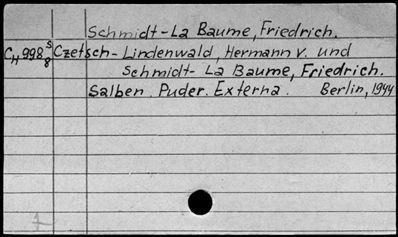 Schmidt-La Baume, Friedrich.
CH 998 S8 Czetsch-Lindenwald, Hermann v. und
Schmidt-La Baume, Friedrich.
Salben. Puder. Externa. Berlin, 1944